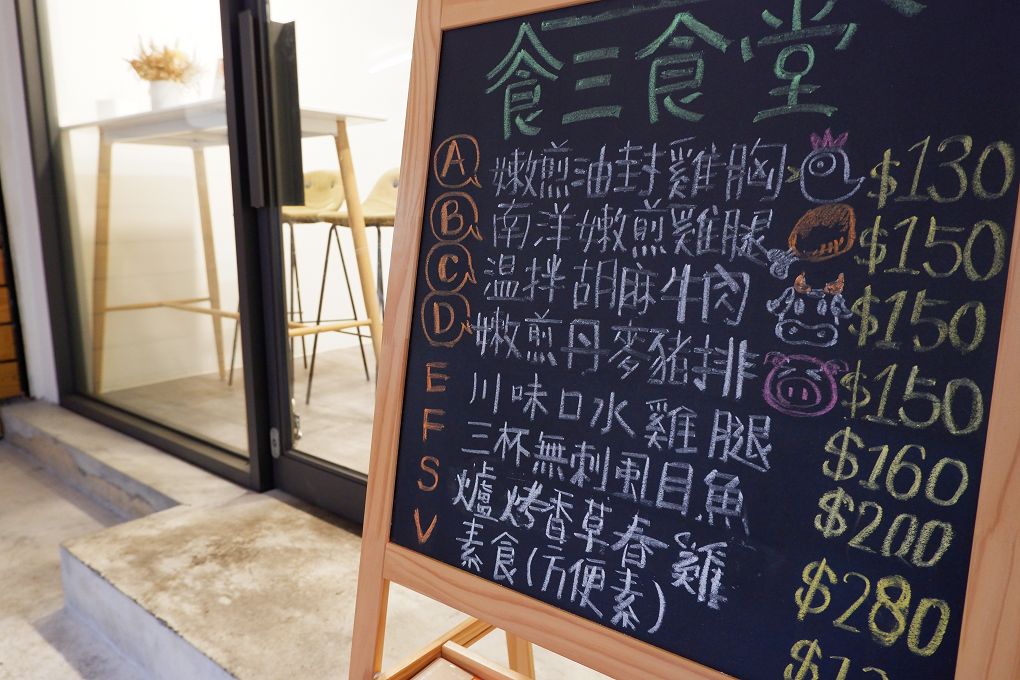 食三食堂
A 嫩煎油封雞胸 $130
B 南洋嫩煎雞腿 $150
C 溫拌胡麻牛肉 $150
D 嫩煎丹麥豬排 $150
E 川味口水雞腿 $160
F 三杯無刺虱目魚 $200
S 爐烤香草春雞 $280
V 素食(方便素)